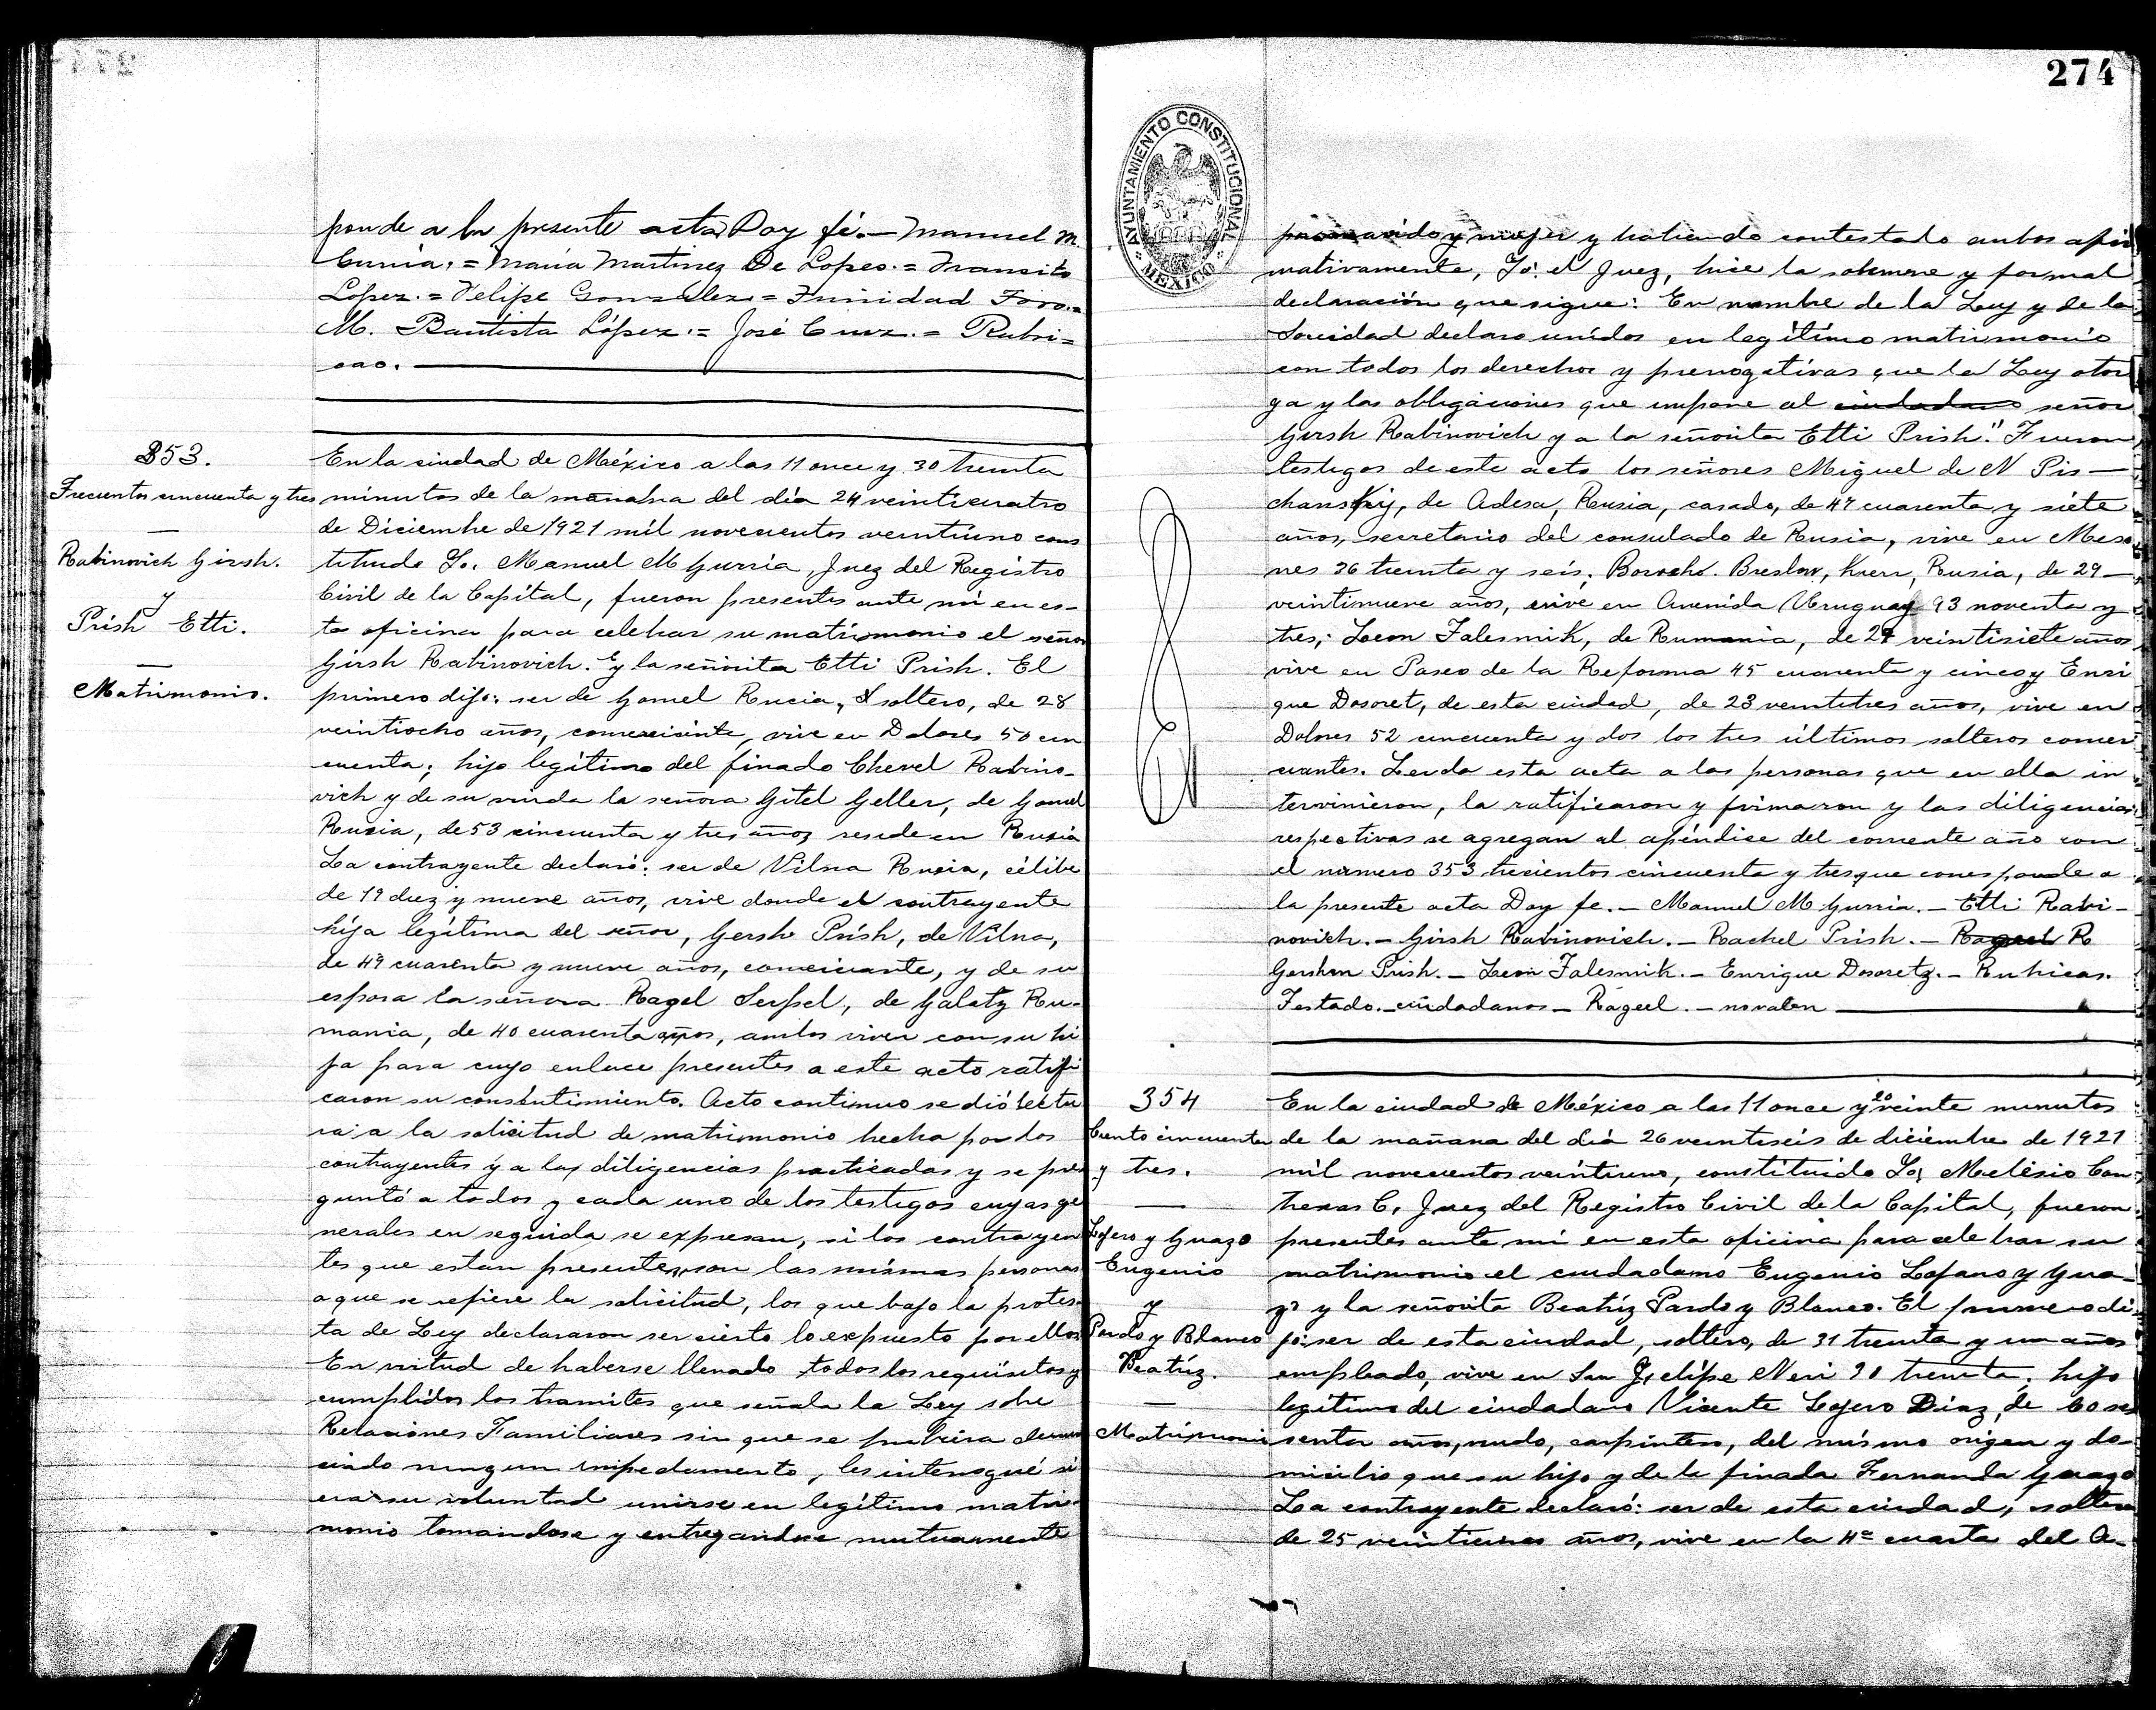 ponde a la presente acta Doy fé.— Manuel M.
Gurria. = María Martinez De Lopes. = Transito
Lopez. = Felipe Gonzalez = Trinidad Toro. =
M. Bautista López. = José Cruz. = Rubri=
cas.
353.
Trecientos cincuenta y tres
Rabinovich Girsh.
y
Prish Etti.
Matrimonio.
En la ciudad de México a las 11 once y 30 treinta
minutos de la mañana del día 24 veinticuatro
de Diciembre de 1921 mil novecientos veintiuno cons
tituido Yo. Manuel M Gurria, Juez del Registro
Civil de la Capital, fueron presentes ante mí en es-
ta oficina para celebrar su matrimonio el señor
Girsh Rabinovich. y la señorita Etti Prish. El
primero dijo: ser de Gomel Rucia, soltero, de 28
veintiocho años, comerciante, vive en Dolores 50 cin
cuenta; hijo legítimo del finado Chevel Rabino-
vich y de su viuda la señora Gitel Geller, de Gomel
Rusia, de 53 cincuenta y tres años, reside en Rusia
La contrayente declaró: ser de Vilna Rusia, célibe
de 19 diez y nueve años, vive donde el contrayente
hija legítima del señor, Gersh Prish, de Vilna,
de 49 cuarenta y nueve años, comerciante, y de su
esposa la señora Ragel Serpel, de Galatz Ru-
mania, de 40 cuarenta años, ambos viven con su hi
ja para cuyo enlace presentes a este acto ratifi
caron su consentimiento. Acto continuo se dió lectu
ra a la solicitud de matrimonio hecha por los
contrayentes y a las diligencias practicadas y se pre
guntó a todos y cada uno de los testigos cuyas ge
nerales en seguida se expresan, si los contrayen
tes que están presentes, son las mismas personas
a que se refiere la solicitud, los que bajo la protes
ta de Ley declararon ser cierto lo expuesto por ellos
En virtud de haberse llenado todos los requisitos y
cumplidos los tramites que señala la Ley sobre
Relaciones Familiares sin que se hubiera denun
ciado ningun impedimento, les interrogué si
era su voluntad unirse en legítimo matri-
monio tomandose y entregandose mutuamente
274
AYUNTAMIENTO CONSTITUCIONAL
MÉXICO
por marido y mujer y habiendo contestado ambos afir
mativamente, Yo: el Juez, hice la solemne y formal
declaración que sigue: En nombre de la Ley y de la
Sociedad declaro unidos en legítimo matrimonio
con todos los derechos y prerrogativas que la Ley otor
ga y las obligaciones que impone al ciudadano señor
Girsh Rabinovich y a la señorita Etti Prish." Fueron
testigos de este acto los señores Miguel de N Pis—
chansky, de Odesa, Rusia, casado, de 47 cuarenta y siete
años, secretario del consulado de Rusia, vive en Meso
nes 36 treinta y seis. Boroch. Breslov, Kuer, Rusia, de 29—
veintinueve años, vive en Avenida Uruguay 93 noventa y
tres; Leon Falesnik, de Rumania, de 27 veintisiete años
vive en Paseo de la Reforma 45 cuarenta y cinco y Enri
que Dosoret, de esta ciudad, de 23 veintitres años, vive en
Dolores 52 cincuenta y dos los tres últimos solteros comer
ciantes. Leida esta acta a las personas que en ella in
tervinieron, la ratificaron y firmaron y las diligencias
respectivas se agregan al apéndice del corriente año con
el número 353 trecientos cincuenta y tres que corresponde a
la presente acta Doy fe.— Manuel M Gurria.— Etti Rabi-
novich.— Girsh Rabinovich.— Rachel Prish.— Rageel R
Gershon Prish.— Leon Falesnik.— Enrique Dosoretz.— Rubricas.
Testado.— ciudadanos— Rageel.— no valen
354
Ciento cincuenta
y tres.
Lojero y Guazo
Eugenio
y
Pardo y Blanco
Beatríz.
Matrimonio
En la ciudad de México a las 11 once y 20 veinte minutos
de la mañana del día 26 veintiseis de diciembre de 1921
mil novecientos veintiuno, constituido Yo, Melesio Con
treras C. Juez del Registro Civil de la Capital, fueron
presentes ante mí en esta oficina para celebrar su
matrimonio el ciudadano Eugenio Lojero y Gua-
zo y la señorita Beatríz Pardo y Blanco. El primero di
jo: ser de esta ciudad, soltero, de 31 treinta y un años
empleado, vive en San Felipe Neri 30 treinta; hijo
legítimo del ciudadano Vicente Lojero Diaz, de 60 se
senta años, viudo, carpintero, del mismo origen y do-
micilio que su hijo y de la finada Fernanda Guazo
La contrayente declaró: ser de esta ciudad, soltera
de 25 veinticinco años, vive en la 4ª cuarta del A-